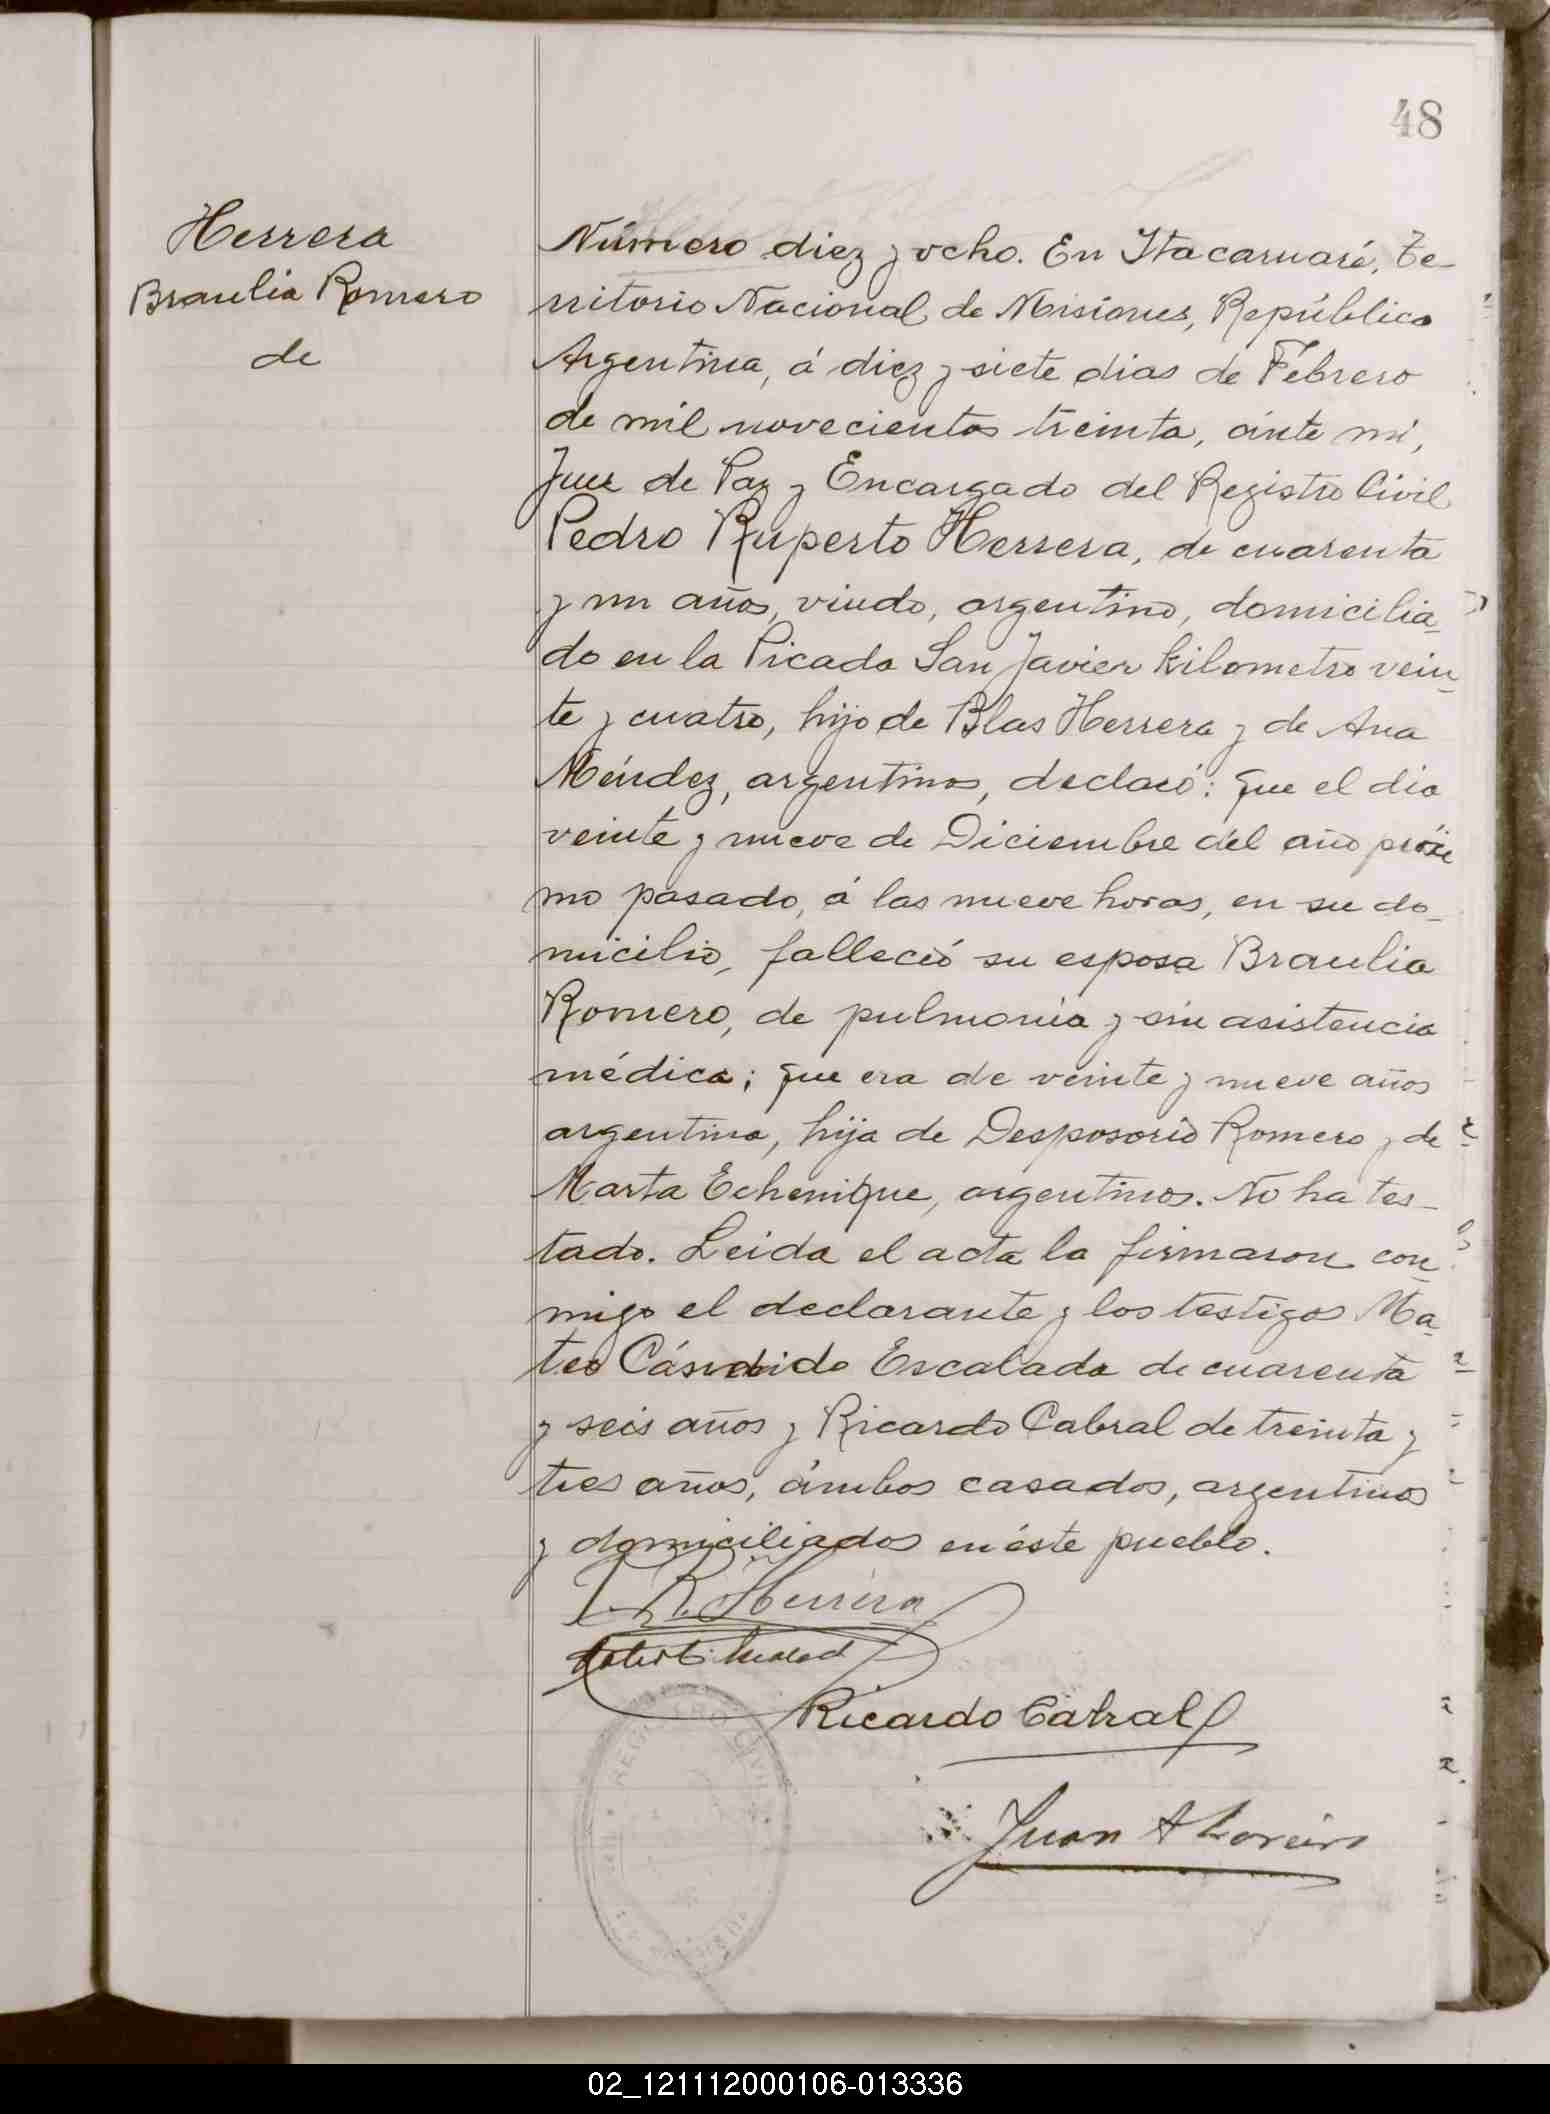 48
Herrera
Braulia Romero
de
Número diez y ocho. En Itacaruaré, Te-
rritorio Nacional de Misiones, República
Argentina, á diez y siete dias de Febrero
de mil novecientos treinta, ánte mí,
Juez de Paz y Encargado del Registro Civil
Pedro Ruperto Herrera, de cuarenta
y un años, viudo, argentino, domicilia-
do en la Picada San Javier kilometro vein-
te y cuatro, hijo de Blas Herrera y de Ana
Méndez, argentinos, declaró: que el dia
veinte y nueve de Diciembre del año próxi
mo pasado, á las nueve horas, en su do-
micilio, falleció su esposa Braulia
Romero, de pulmonia y sin asistencia
médica; que era de veinte y nueve años
argentina, hija de Desposorio Romero y de
Marta Echenique, argentinos. No ha tes-
tado. Leida el acta la firmaron con-
migo el declarante y los testigos Ma-
teo Cándido Escalada de cuarenta
y seis años y Ricardo Cabral de treinta y
tres años, ámbos casados, argentinos
y domiciliados en éste pueblo.
P. R. Herrera
Ricardo Cabral
Juan A
REGISTRO CIVIL
02_121112000106-013336